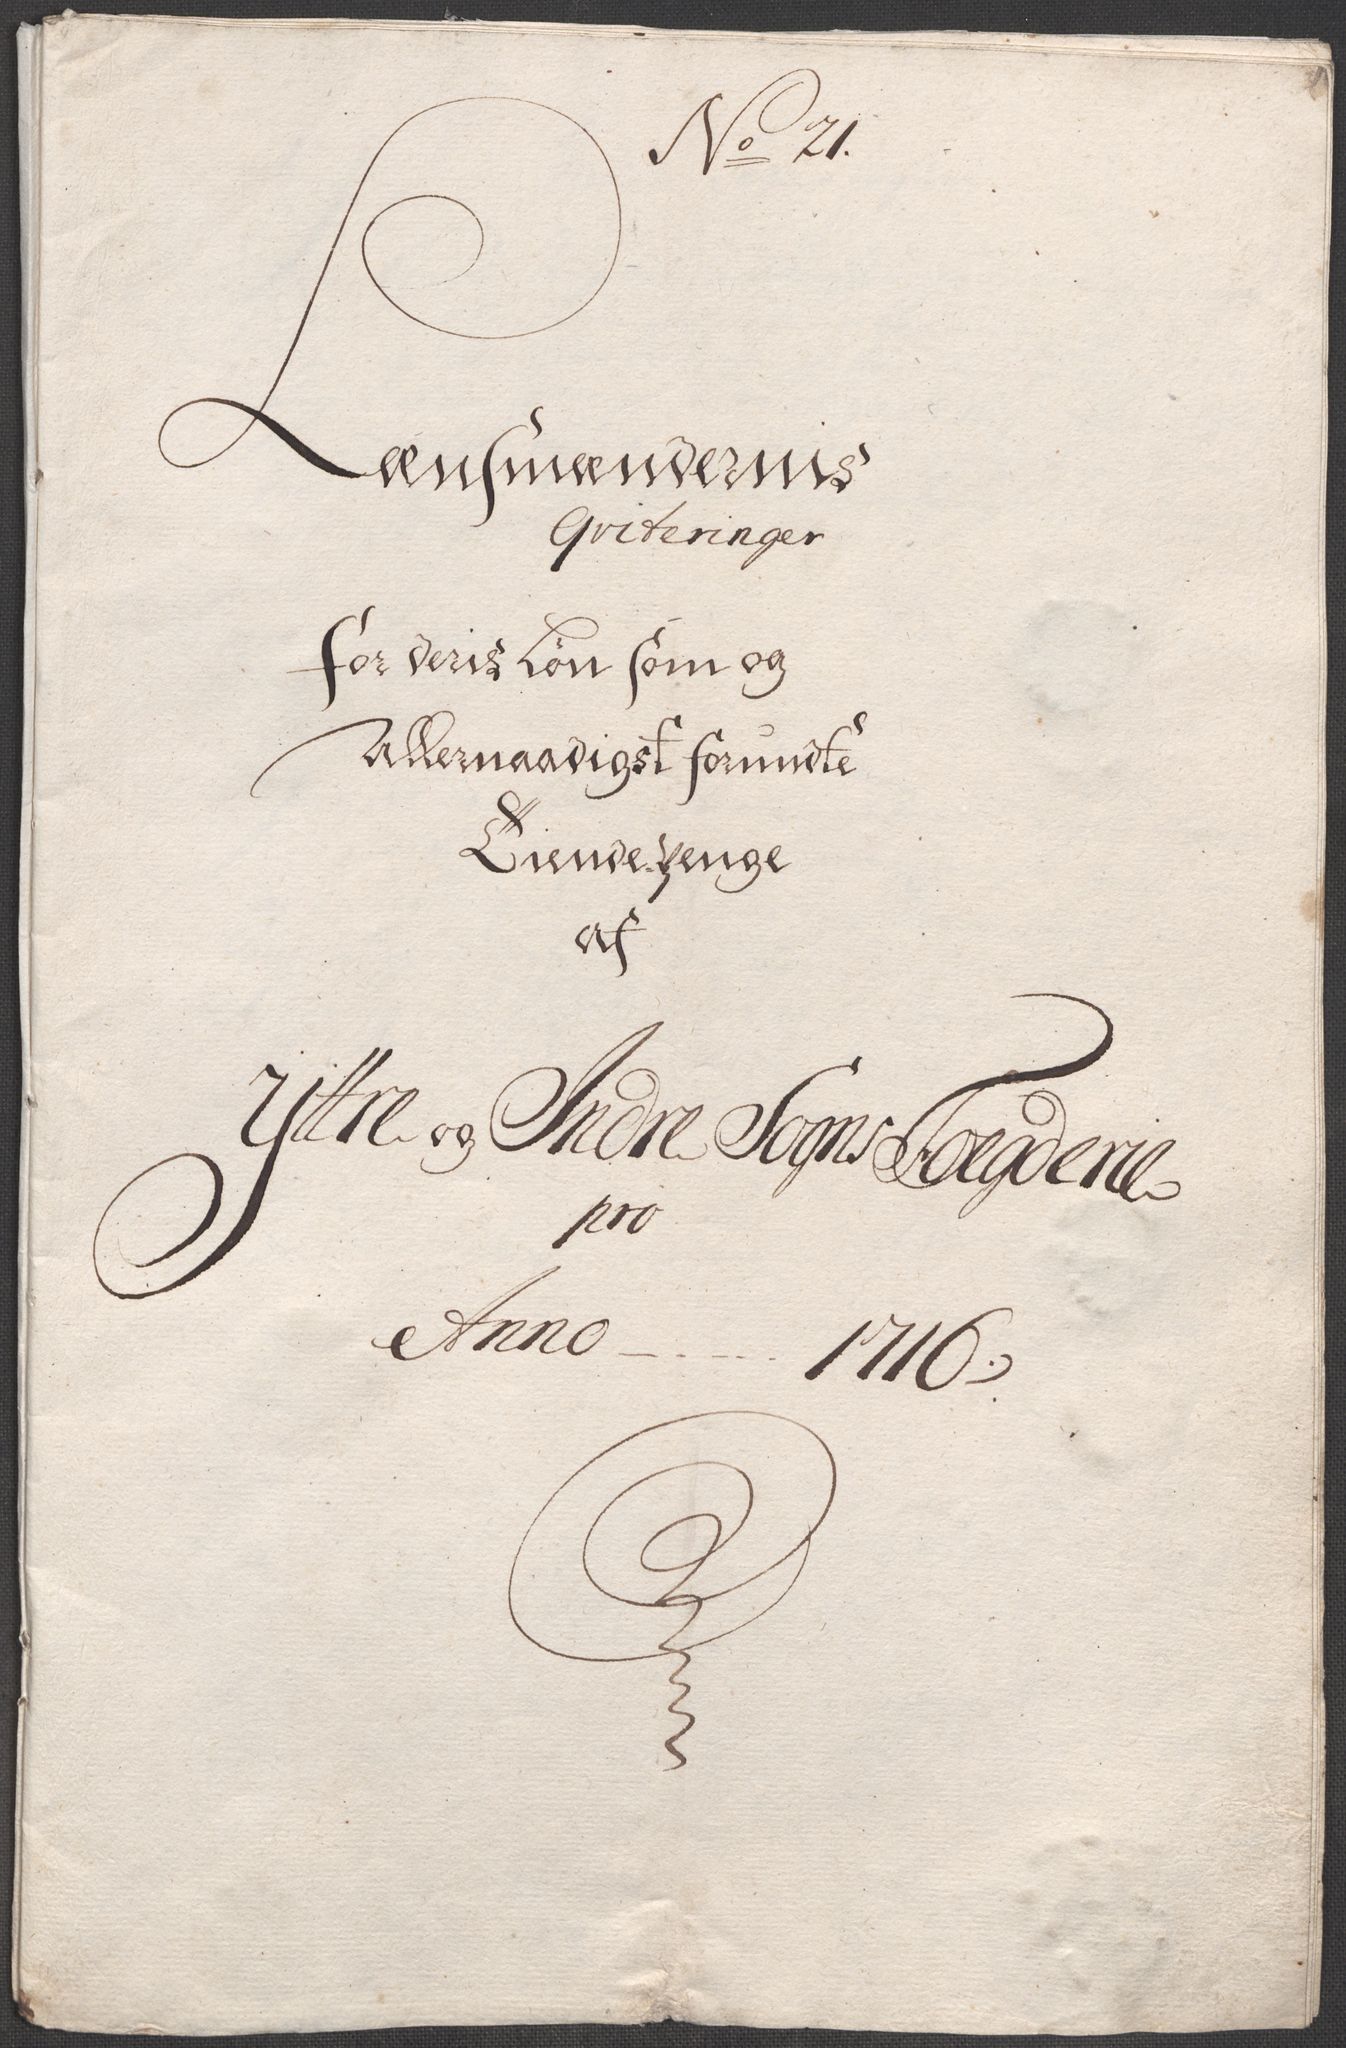 No 21.
Lænsmændernis
Qviteringer
for deris Lön som og
Allernaadigst forundte
Tiende penge
af
Yttre og Indre Sogns Foegderie
pro
Anno - . - . - . - 1716.